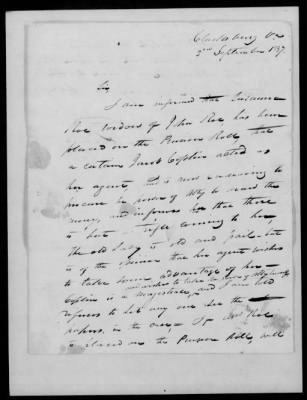 Clarksburg Va
2nd September 1837
Sir
I am informed that Susanna
Roe widow of John Roe has been
placed on the Pension Roll that
a certain Jacob Coplin acted as
her agent, and is now endeavoring to
procure her power of Atty to draw the
money, and informs her that there
is but a trifle coming to her,
the old lady is old and frail but
is of the opinion that her agent wishes
to take some advantage of her
Coplin is a Magistrate, and I am told
refuses to let any one see the
papers, in the case, If Mrs Roe
is placed on the Pension Roll, will